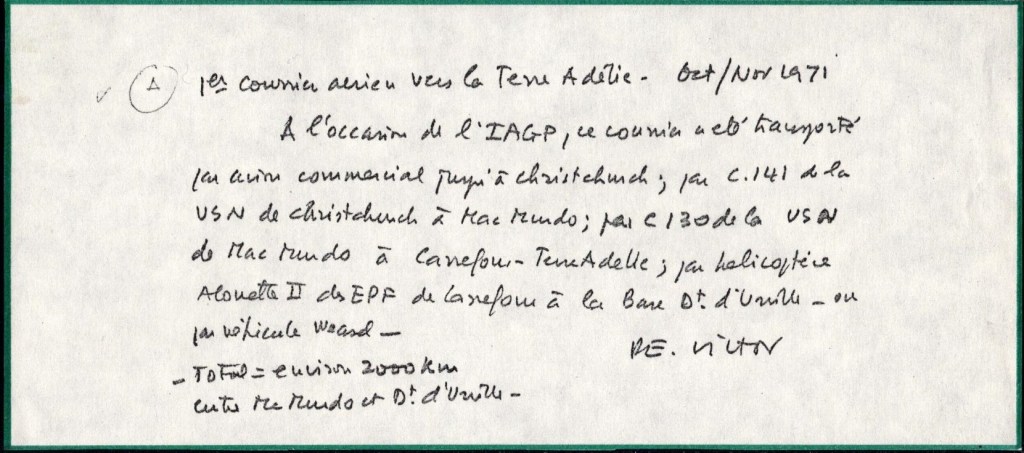 A 1er courrier aérien vers la Terre Adélie - Oct/Nov 1971
A l'occasion de l'IAGP, ce courrier a été transporté
par avion commercial jusqu'à Christchurch ; par C.141 de la
USN de Christchurch à Mac Murdo ; par C 130 de la USN
de Mac Murdo à Carrefour - Terre Adélie ; par hélicoptère
Alouette II des EPF de Carrefour à la Base Dt. d'Urville - ou
par véhicule Weasel -
PE. Victor
- Total = environ 2000 km
entre Mc Murdo et Dt. d'Urville -